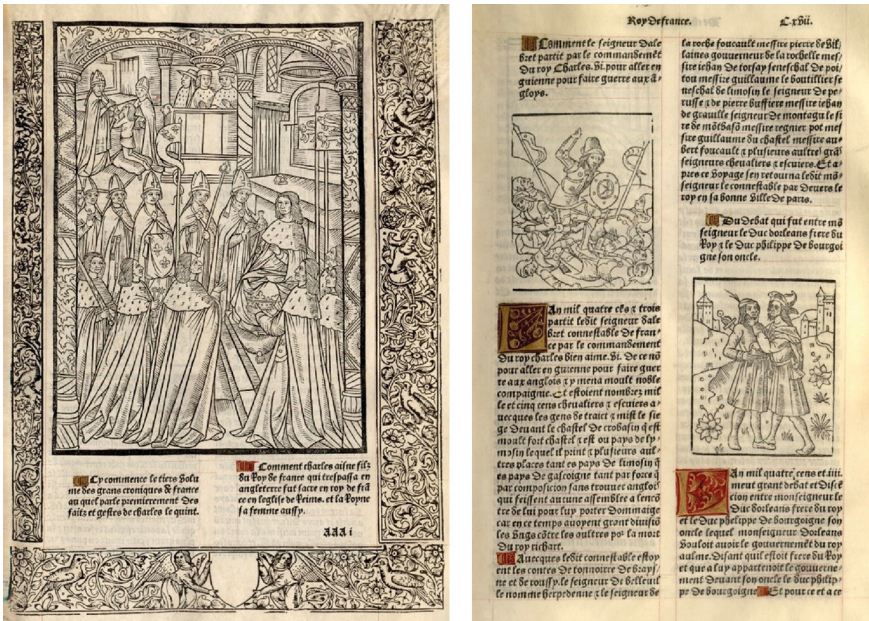 Cy commence le tiers volu
me des grans croniques de france
au quel parle premierement des
faitz et gestes de charles le quint.
Comment charles aisne filz
du Roy de france qui trespassa en
angleterre fut sacre en roy de frā
ce en leglise de Reims. et la Royne
sa femme aussy.
aaa i
Roy de france.
C.xvii.
Comment le seigneur dale
bret partit par le commandemēt
du roy Charles.vi. pour aller en
guienne pour faire guerre aux ā
gloys.
LAn mil quatre cēs et trois
partit ledit seigneur dale
bret connestable de fran
ce par le commandement
du roy charles bien aime.vi. de ce nō
pour aller en guienne pour faire guer
re aux anglois et y mena moult noble
compaigne. Et estoient nombrez mil
le et cinq cens chevaliers et escuiers a
vecques les gens de traict et mist le sie
ge devant le chastel de qui est
moult fort chastel et est ou pays de ly
mosin lequel il print et plusieurs aul
tres places tant es pays de limosin que
es pays de gascoigne tant par force que
par composicion sans trouver anglois
qui feissent aucune assemblee a lencō
tre de lui pour luy porter dommaige
car en ce temps avoyent grant division
les vngs cōtre les aultres po la mort
du roy richart.
Auecques ledit connestable estoy
ent les contes de tonnoirre de brays
ne et de roussy. le seigneur de belleuil
le nomme herpedenne et le seigneur de
la roche foucault messire pierre de vil
laines gouverneur de la rochelle mes
sire iehan de torsay seneschal de poi
tou messire guillaume le boutillier se
neschal de limosin le seigneur de pe
russe et de pierre buffiere messire iehan
de graville seigneur de montagu le si
re de mōtbasō messire regnier pot mes
sire guillaume du chastel messire au
bert foucault et plusieurs aultres grās
seigneurs chevaliers et escuiers. Et a
pres ce voyage sen retourna ledit mō
seigneur le connestable par devers le
roy en sa bonne ville de paris.
Du debat qui fut entre mō
seigneur le Duc dorleans frere du
Roy et le Duc philippe de bourgoi
gne son oncle.
LAn mil quatre cens et iiii.
meut grant debat et discē
cion entre monseigneur le
Duc dorleans frere du roy
et le Duc philippe de bourgoigne son
oncle lequel monseigneur Dorleans
vouloit avoir le gouvernemēt du roy
aulme. Disant quil estoit frere du Roy
et que a luy appartenoit le gouverne
ment devant son oncle le duc philip
pe de bourgoigne Et pour ce et a ce